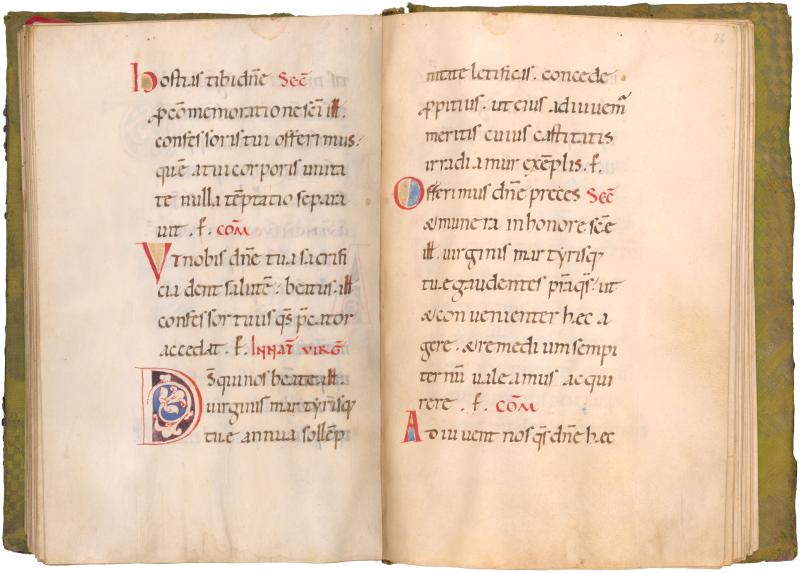 hostias tibi dn̄e Sec̄
ꝓ cōmemoratione sc̄i ill.
confessoris tui offerimus.
quē a tui corporis unita
te nulla tēptatio separa
uit. ꝑ. cōm
Vt nobis dn̄e tua sacrifi
cia dent salutē. beatus. ill
confessor tuus qs̄ p̄cator
accedat. ꝑ. In nat̄ virḡ
Ds̄ qui nos beate ill
uirginis martyrisq;
tue annua sollēp
86
nitate letificas. concede
ꝓpitius. ut eius adiuuem̄
meritis cuius castitatis
irradiamur exēplis. ꝑ.
Offerimus dn̄e preces Sec̄
& munera in honore sc̄e
ill. uirginis martyrisq;
tue gaudentes p̄ra qs̄. ut
& conuenienter hec a
gere. & remedium sempi
ternū ualeamus acqui
rere. ꝑ. cōm
Adiuuent nos qs̄ dn̄e hec